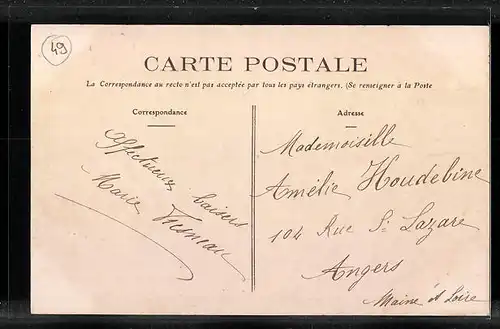 49
CARTE POSTALE
La Correspondance au recto n'est pas acceptée par tous les pays étrangers. (Se renseigner à la Poste
Correspondance
Affectueux baisers
Marie
Adresse
Mademoiselle
Amélie Houdebine
104 Rue St Lazare
Angers
Maine et Loire